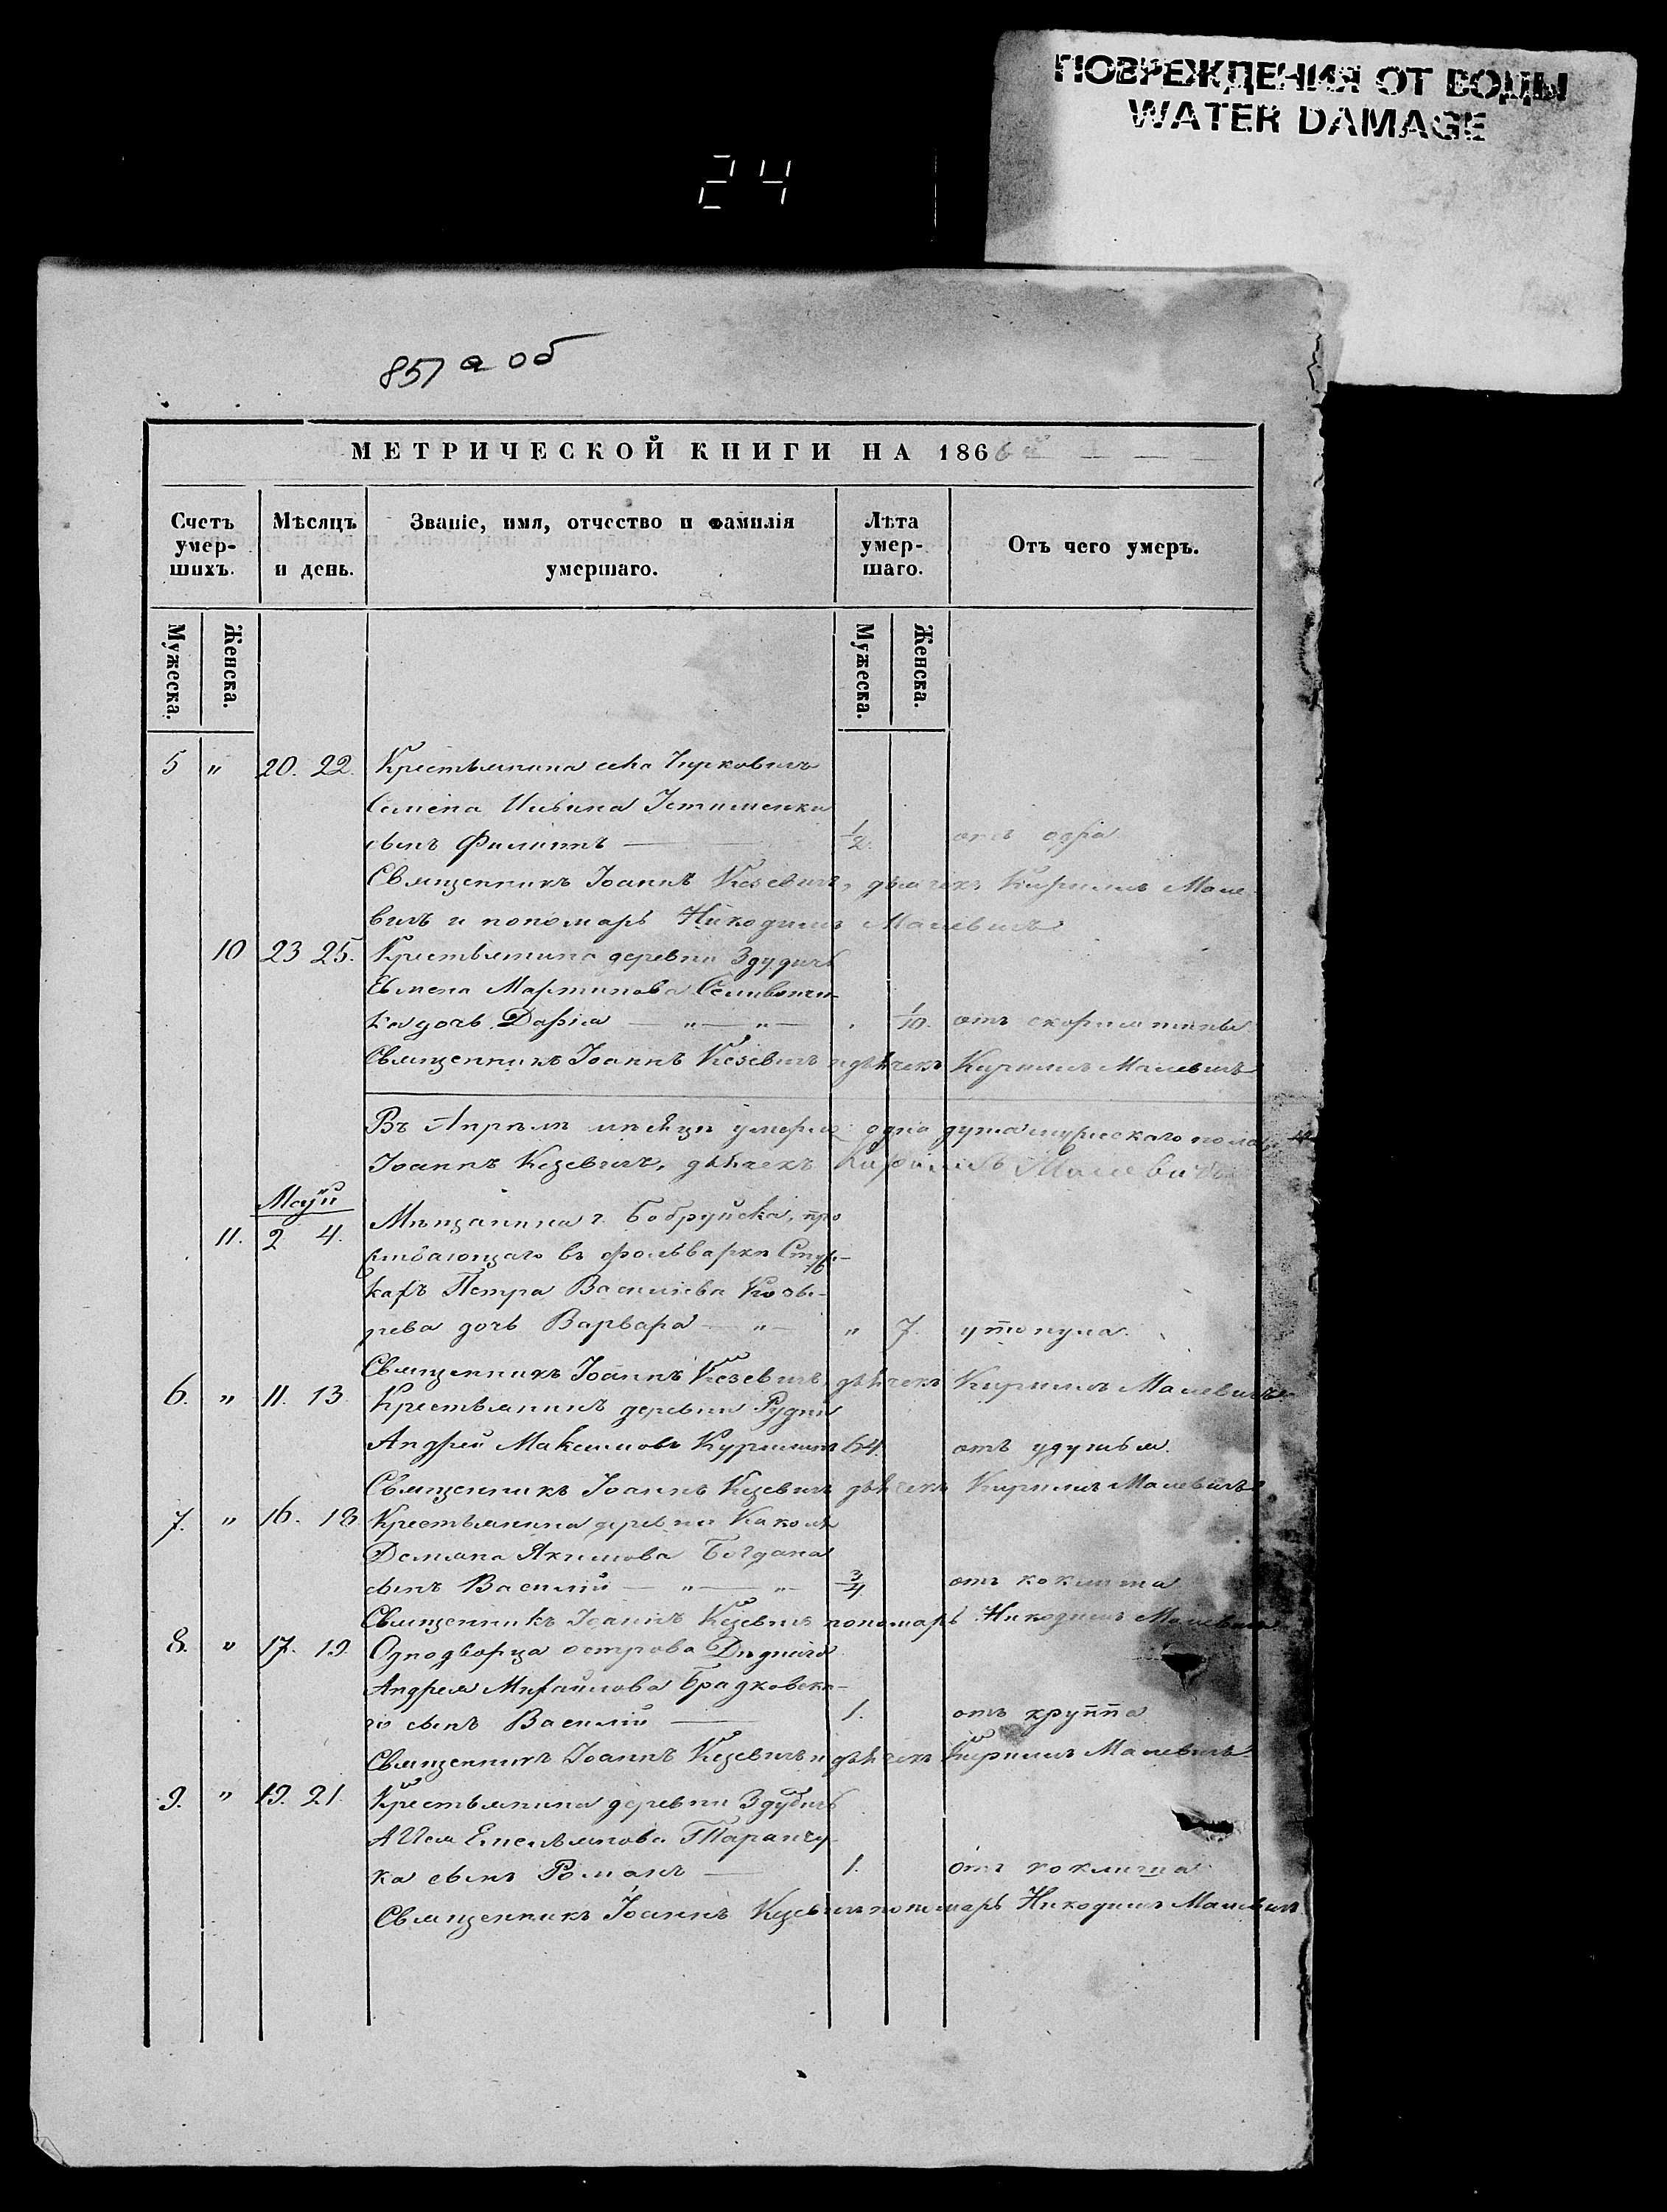 ПОВРЕЖДЕНИЯ ОТ ВОДЫ
WATER DAMAGE
24
857 а об
МЕТРИЧЕСКОЙ КНИГИ НА 1866 й
Счетъ умер-шихъ.
Мѣсяцъ и день.
Званіе, имя, отчество и фамилія умершаго.
Лѣта умер-шаго.
Отъ чего умеръ.
Мужеска.
Женска.
Мужеска.
Женска.
5 " 20. 22. Крестьянина села
Семена Ильина
сынъ Филиппъ — 1/2. отъ
Священникъ Іоаннъ Кезевичъ, дьячекъ Кириллъ Мале-
вичъ и пономарь Никодимъ Малевичъ
10 23 25. Крестьянина деревни Здудичъ
Мартинова
ка дочь Дарія — " — " — 1/10. отъ скарлатины
Священникъ Іоаннъ Кезевичъ и дьячекъ Кириллъ Малевичъ
Въ Апрѣлѣ мѣсяцѣ умерла одна душа мужескаго пола
Іоаннъ Кезевичъ, дьячекъ Кириллъ Малевичъ
Маій
11. 2 4. Мѣщанина г. Бобруйска, про
живающаго въ фольваркѣ
Петра Василіева Козы-
рева дочь Варвара — " — " 7. утонула.
Священникъ Іоаннъ Кезевичъ, дьячекъ Кириллъ Малевичъ
6. " 11. 13 Крестьянинъ деревни Рудни
Андрей Максимовъ 64. отъ удушья.
Священникъ Іоаннъ Кезевичъ дьячекъ Кириллъ Малевичъ
7. " 16. 18. Крестьянина деревни Какель
Демьяна Якимова Богдана
сынъ Василій — " — " — 3/4 отъ коклюша
Священникъ Іоаннъ Кезевичъ пономарь Никодимъ Малевичъ
8. " 17. 19. Однодворца острова Дѣднаго
Андрея Михайлова Брадковска-
го сынъ Василій — 1. отъ круппа
Священникъ Іоаннъ Кезевичъ и дьячекъ Кириллъ Малевичъ
9. " 19. 21. Крестьянина деревни Здудичъ
Емельянова Таранчу-
ка сынъ Романъ — 1. отъ коклюша
Священникъ Іоаннъ Кезевичъ пономарь Никодимъ Малевичъ